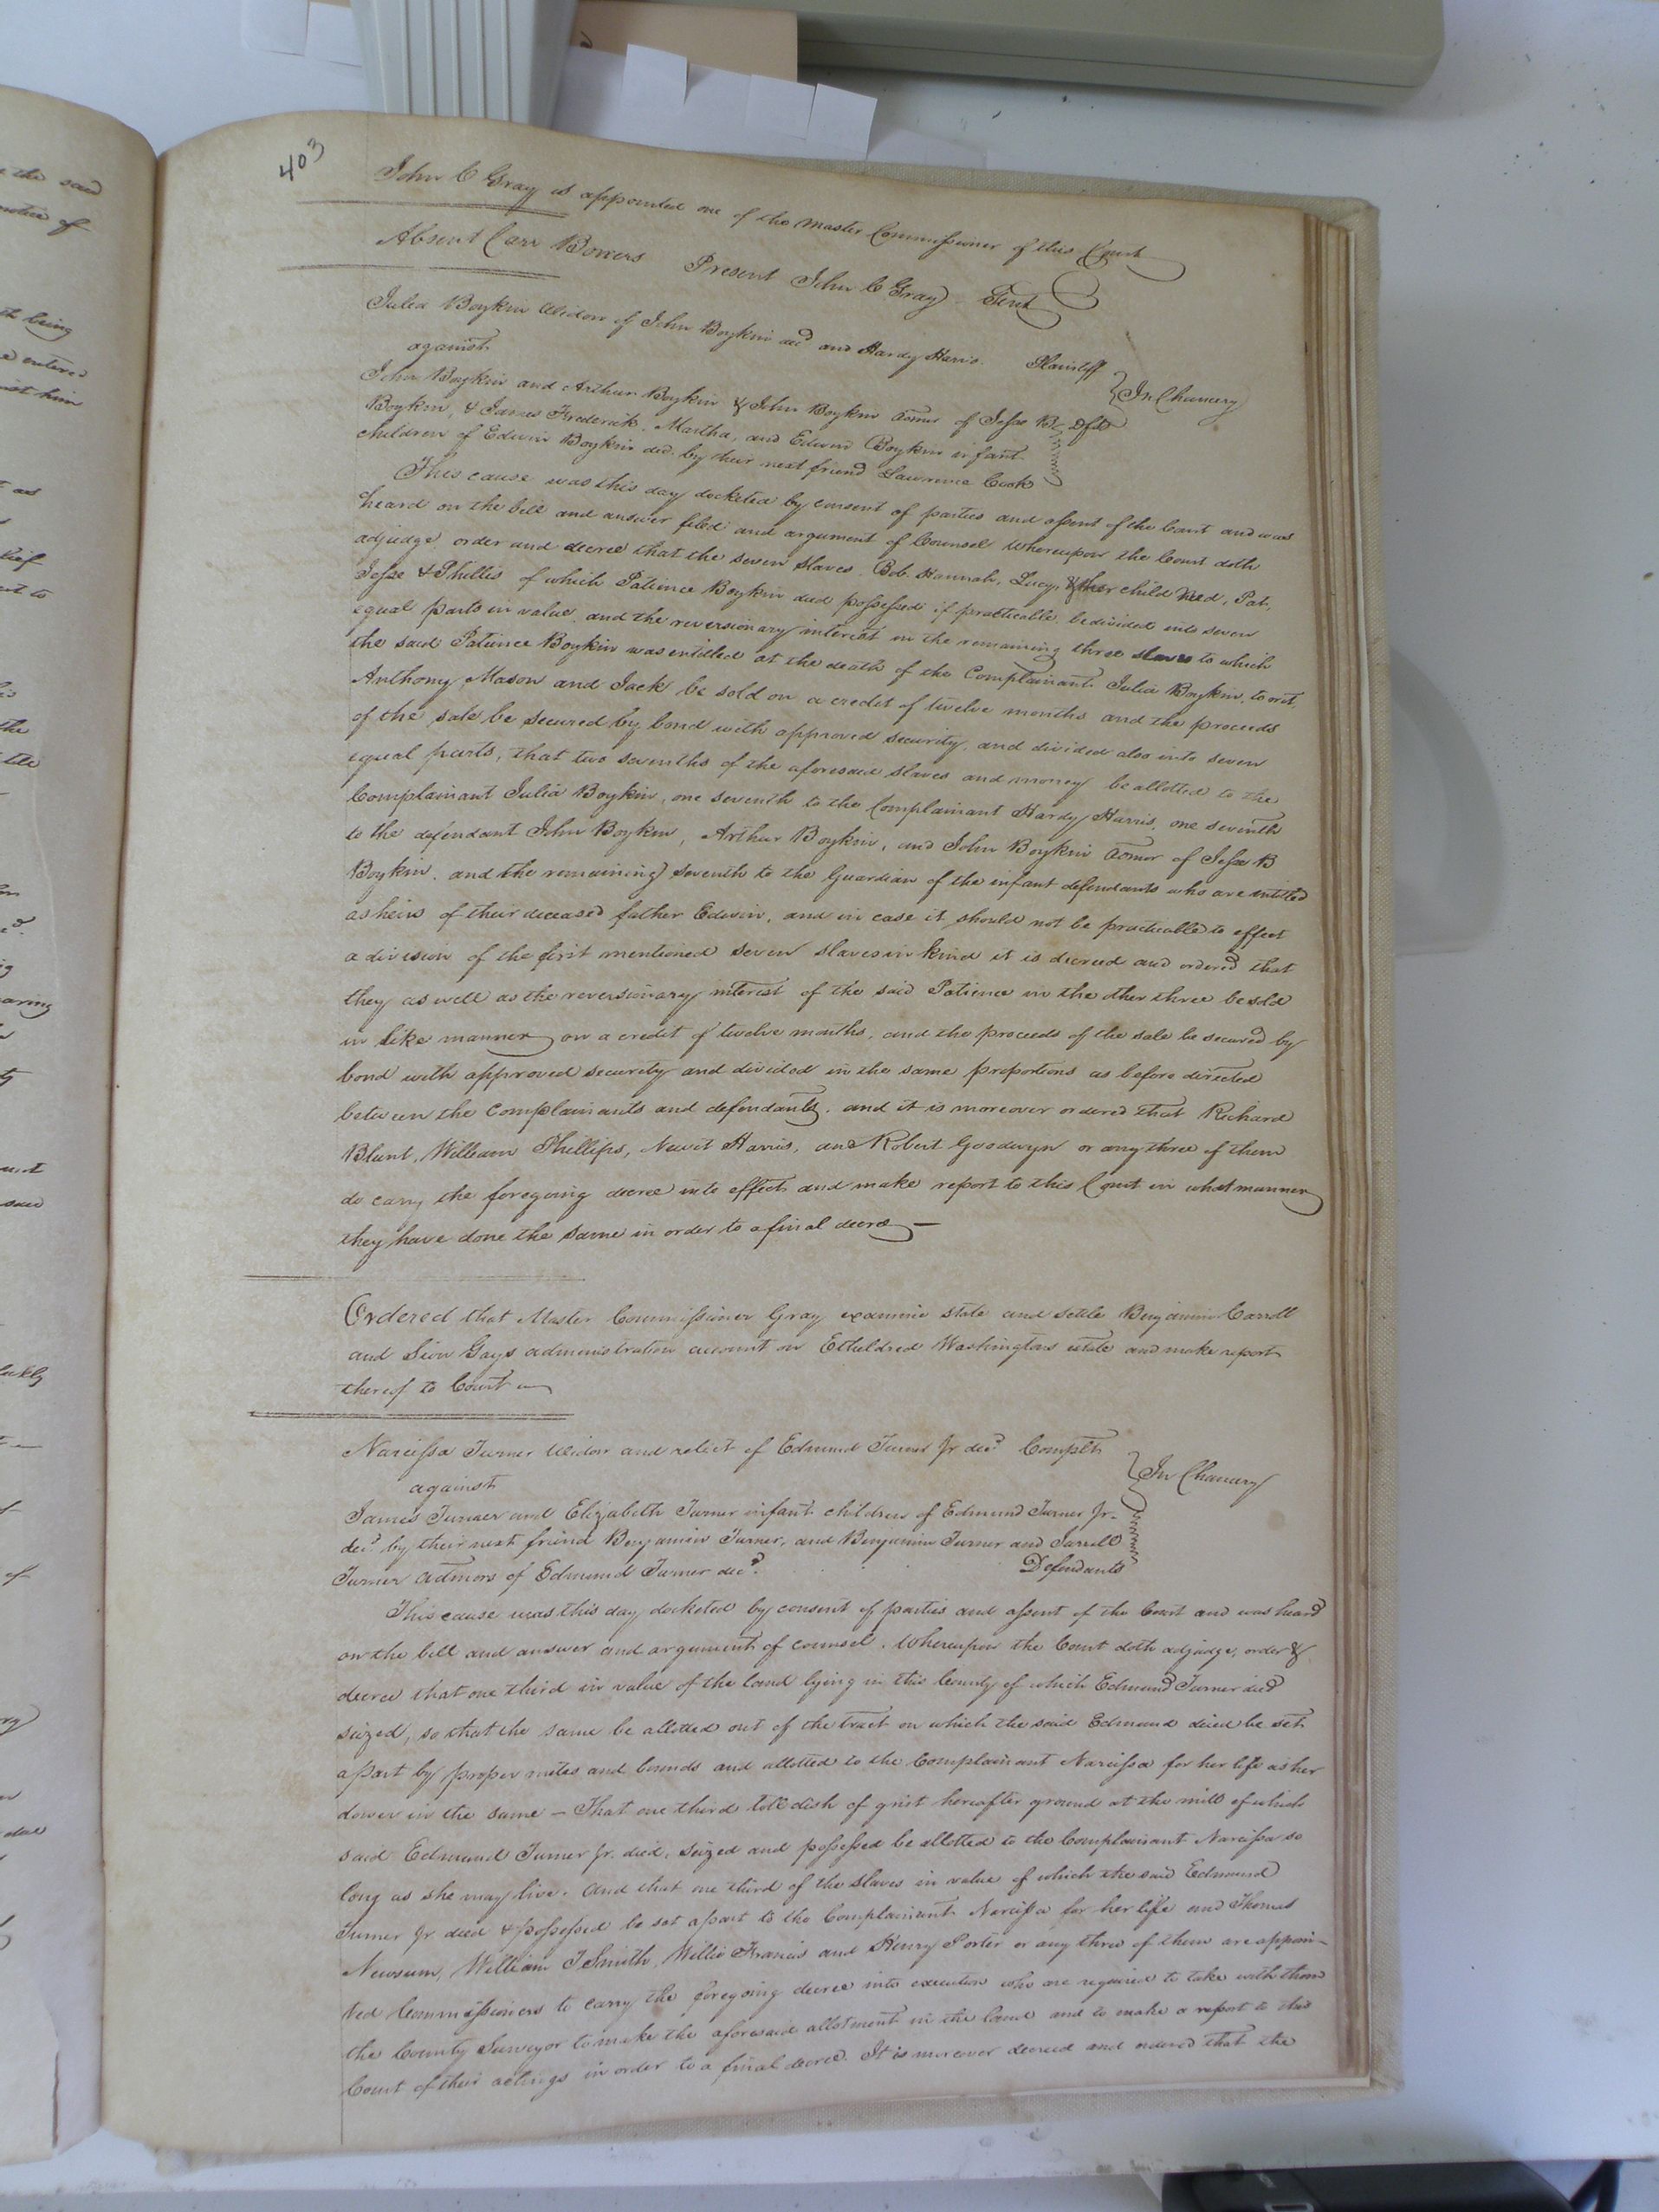 403
John C Gray is appointed one of the Master Commissioner of this Court
Absent Carr Bowers Present John C Gray Gent
Julia Boykin Widow of John Boykin decd and Hardy Harris. Plaintiff
against
In Chancery
John Boykin and Arthur Boykin & John Boykin admr of Jesse B Dfts
Boykin, & James Frederick, Martha, and Edwin Boykin infant
children of Edwin Boykin decd. by their next friend Lawrence Cook
This cause was this day docketed by consent of parties and assent of the Court and was
heard on the bill and answer filed and argument of Counsel Whereupon the Court doth
adjudge, order and decree that the seven slaves Bob. Hannah, Lucy, & her child Ned, Pat,
Jesse & Phillis of which Patience Boykin died possessed if practicable be divided into seven
equal parts in value and the reversionary interest in the remaining three slaves to which
the said Patience Boykin was entitled at the death of the Complainant Julia Boykin, to wit,
Anthony Mason and Jack be sold on a credit of twelve months and the proceeds
of the sale be secured by bond with approved security, and divided also into seven
equal parts, that two sevenths of the aforesaid slaves and money be allotted to the
Complainant Julia Boykin, one seventh to the Complainant Hardy Harris, one seventh
to the defendant John Boykin, Arthur Boykin, and John Boykin admor of Jesse B
Boykin, and the remaining seventh to the Guardian of the infant defendants who are entitled
as heirs of their deceased father Edwin, and in case it should not be practicable to effect
a division of the first mentioned seven slaves in kind it is decreed and ordered that
they as well as the reversionary interest of the said Patience in the other three be sold
in like manner on a credit of twelve months, and the proceeds of the sale be secured by
bond with approved security and divided in the same proportions as before directed
between the Complainants and defendants, and it is moreover ordered that Richard
Blunt, William Phillips, Newit Harris, and Robert Goodwyn or any three of them
do carry the foregoing decree into effect and make report to this Court in what manner
they have done the same in order to a final decree —
Ordered that Master Commissioner Gray examine state and settle Benjamin Carroll
and Sion Gays administration account on Etheldred Washingtons estate and make report
thereof to Court —
Narcissa Turner Widow and relict of Edmund Turner Jr decd Complt
against
In Chancery
James Turner and Elizabeth Turner infant children of Edmund Turner Jr.
decd by their next friend Benjamin Turner, and Benjamin Turner and Jarrell
Turner admors of Edmund Turner decd. Defendants
This cause was this day docketed by consent of parties and assent of the Court and was heard
on the bill and answer and argument of counsel. Whereupon the Court doth adjudge, order &
decree that one third in value of the land lying in this County of which Edmund Turner died
seized, so that the same be allotted out of the tract on which the said Edmund died be set
apart by proper metes and bounds and allotted to the Complainant Narcissa for her life as her
dower in the same — That one third toll dish of grist hereafter ground at the mill of which
said Edmund Turner Jr. died, seized and possessed be allotted to the Complainant Narcissa so
long as she may live. And that one third of the slaves in value of which the said Edmund
Turner Jr died & possessed be set apart to the Complainant Narcissa for her life and Thomas
Newsum, William J Smith, Willie Francis and Henry Porter or any three of them are appoin-
ted Commissioners to carry the foregoing decree into execution who are required to take with them
the County Surveyor to make the aforesaid allotment in the land and to make a report to this
Court of their actings in order to a final decree. It is moreover decreed and ordered that the